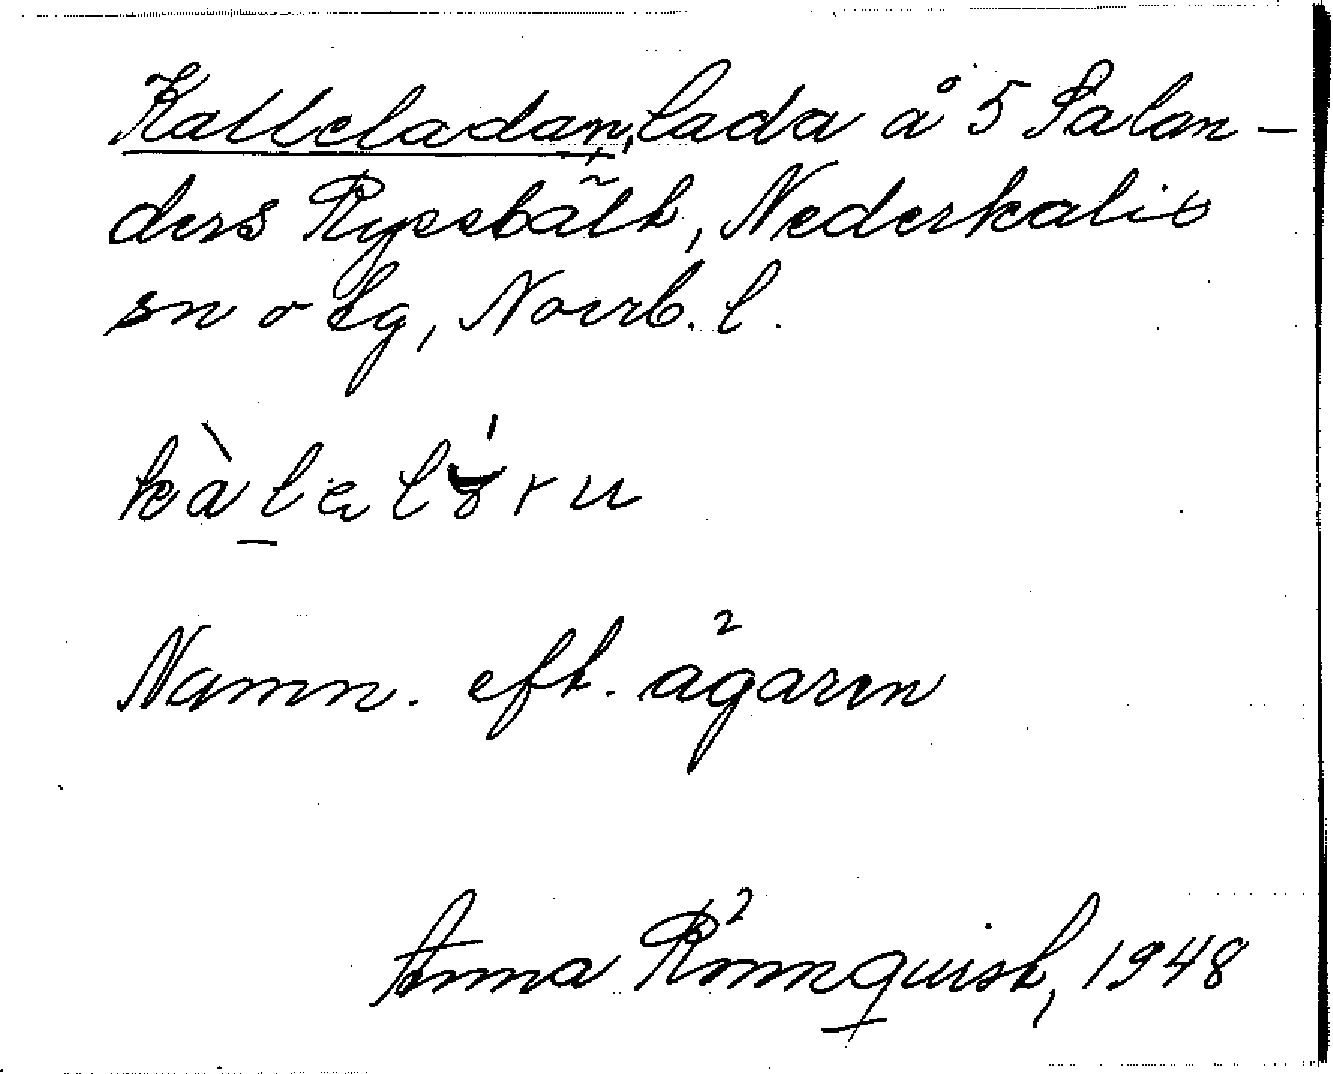 Kalleladan, lada å 5 Palan-
ders Ryssbält, Nederkalix
sn o tg, Norrb. l.
kàlalóru
Namn. eft. ägaren
Anna Rönnquist, 1948